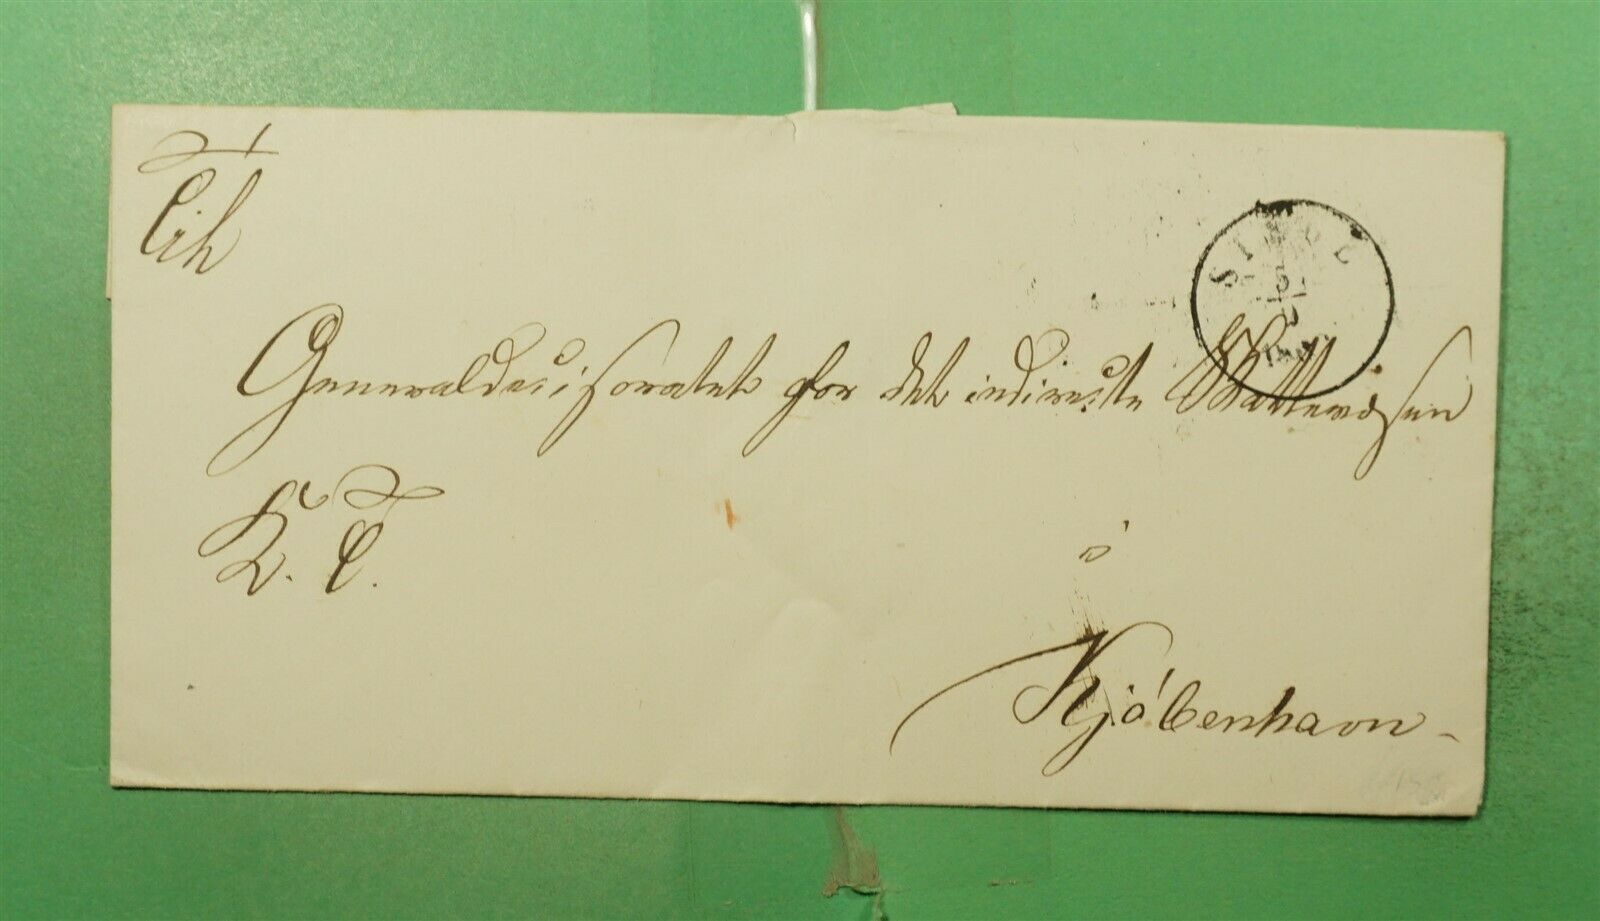 Til
SINDAL
Generaldecisoratet for det indirecte Skattevæsen
K. T.
i
Kjöbenhavn